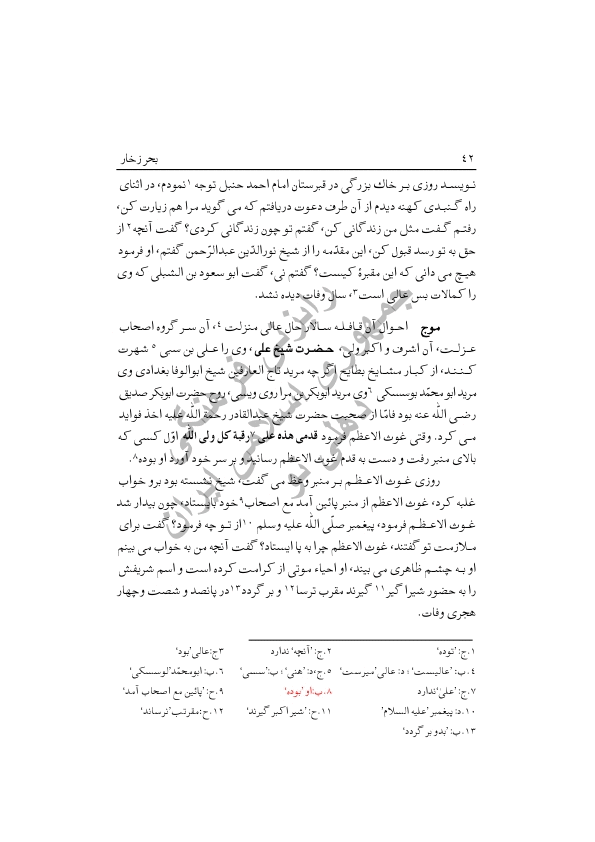 ٤٢ بحر زخار
نویسد روزی بر خاك بزرگی در قبرستان امام احمد حنبل توجه ۱ نمودم، در اثنای
راه گنبدی کهنه دیدم از آن طرف دعوت دریافتم که می گوید مرا هم زیارت کن،
رفتم گفت مثل من زندگانی کن، گفتم تو چون زندگانی کردی؟ گفت آنچه۲ از
حق به تو رسد قبول کن، این مقدّمه را از شیخ نورالدّین عبدالرّحمن گفتم، او فرمود
هیچ می دانی که این مقبرهٔ کیست؟ گفتم نی، گفت ابو سعود بن الشبلی که وی
را کمالات بس عالی است۳، سال وفات دیده نشد.
موج احوال آن قافله سالار حال عالی منزلت ٤، آن سر گروه اصحاب
عزلت، آن اشرف و اکبر ولی، حضرت شیخ علی، وی را علی بن سبی ٥ شهرت
کنند، از کبار مشایخ بطایح اگر چه مرید تاج العارفین شیخ ابوالوفا بغدادی وی
مرید ابو محمّد بوسسکی ٦ وی مرید ابوبکر بن مرا روی ویسی، روح حضرت ابوبکر صدیق
رضی اللّه عنه بود فامّا از صحبت حضرت شیخ عبدالقادر رحمة اللّه علیه اخذ فواید
می کرد. وقتی غوث الاعظم فرمود قدمی هذه علی ۷ رقبة کل ولی اللّه اوّل کسی که
بالای منبر رفت و دست به قدم غوث الاعظم رسانید و بر سر خود آورد او بوده۸.
روزی غوث الاعظم بر منبر وعظ می گفت، شیخ نشسته بود برو خواب
غلبه کرد، غوث الاعظم از منبر پائین آمد مع اصحاب۹ خود بایستاد، چون بیدار شد
غوث الاعظم فرمود، پیغمبر صلّی اللّه علیه وسلم ۱۰ از تو چه فرمود؟ گفت برای
ملازمت تو گفتند، غوث الاعظم چرا به پا ایستاد؟ گفت آنچه من به خواب می بینم
او به چشم ظاهری می بیند، او احیاء موتی از کرامت کرده است و اسم شریفش
را به حضور شیرا گیر۱۱ گیرند مقرب ترسا۱۲ و بر گردد۱۳ در پانصد و شصت وچهار
هجری وفات.
۱.ج: ’توده‘ ۲.ج: ’آنچه‘ ندارد ۳ج:عالی’بود‘
٤.ب: ’عالیست‘ ؛ د: عالی’میرست‘ ٥.ج،د: ’هنی‘ ؛ ب:’سسی‘ ٦.ب: ابومحمّد’لوسسکی‘
۷.ج: ’علی‘ندارد ۸.ب:او ’بوده‘ ۹.ح: ’پائین مع اصحاب آمد‘
۱۰.د: پیغمبر ’علیه السلام‘ ۱۱.ح: ’شیر اکبر گیرند‘ ۱۲.ح:مقرتب’ترساند‘
۱۳.ب: ’بدو بر گردد‘